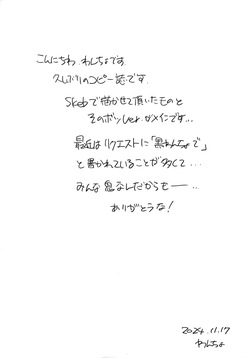 こんにちわ、わんちょです。
久しぶりのコピー誌です。
Skebで描かせて頂いたものと
そのボツver.がメインです…
最近はリクエストに「黒わんちょで」
と書かれていることが多くて…
みんな息なしだからも――…
ありがとうな!
2024.11.17
わんちょ